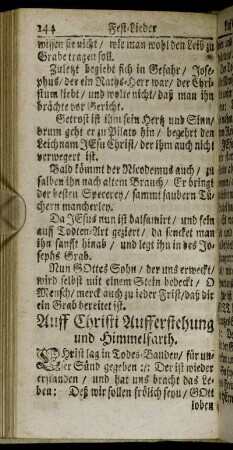 144 Fest-Lieder
wissen sie nicht / wie man wohl den Leib zu
Grabe tragen soll.
Zuletzt begiebt sich in Gefahr / Jose-
phus / der ein Raths-Herr war / der Chri-
stum liebt / und wolte nicht / daß man ihn
brächte vor Gericht.
Getrost ist ihm sein Hertz und Sinn /
drum geht er zu Pilato hin / begehrt den
Leichnam JEsu Christ / der ihm auch nicht
verwegert ist.
Bald kömmt der Nicodemus auch / zu
salben ihn nach altem Brauch / Er bringt
der besten Specerey / sammt saubern Tü-
chern mancherley.
Da JEsus nun ist balsamirt / und fein
auff Todten-Art geziert / da sencket man
ihn sanfft hinab / und legt ihn in des Jo-
sephs Grab.
Nun GOttes Sohn / der uns erweckt /
wird selbst mit einem Stein bedeckt / O
Mensch / merck auch zu jeder Frist / daß dir
ein Grab bereitet ist.
Auff Christi Aufferstehung
und Himmelfarth.
CHrist lag in Todes-Banden / für un-
ser Sünd gegeben :/: Der ist wieder
erstanden / und hat uns bracht das Le-
ben: Deß wir sollen frölich seyn / GOtt
loben